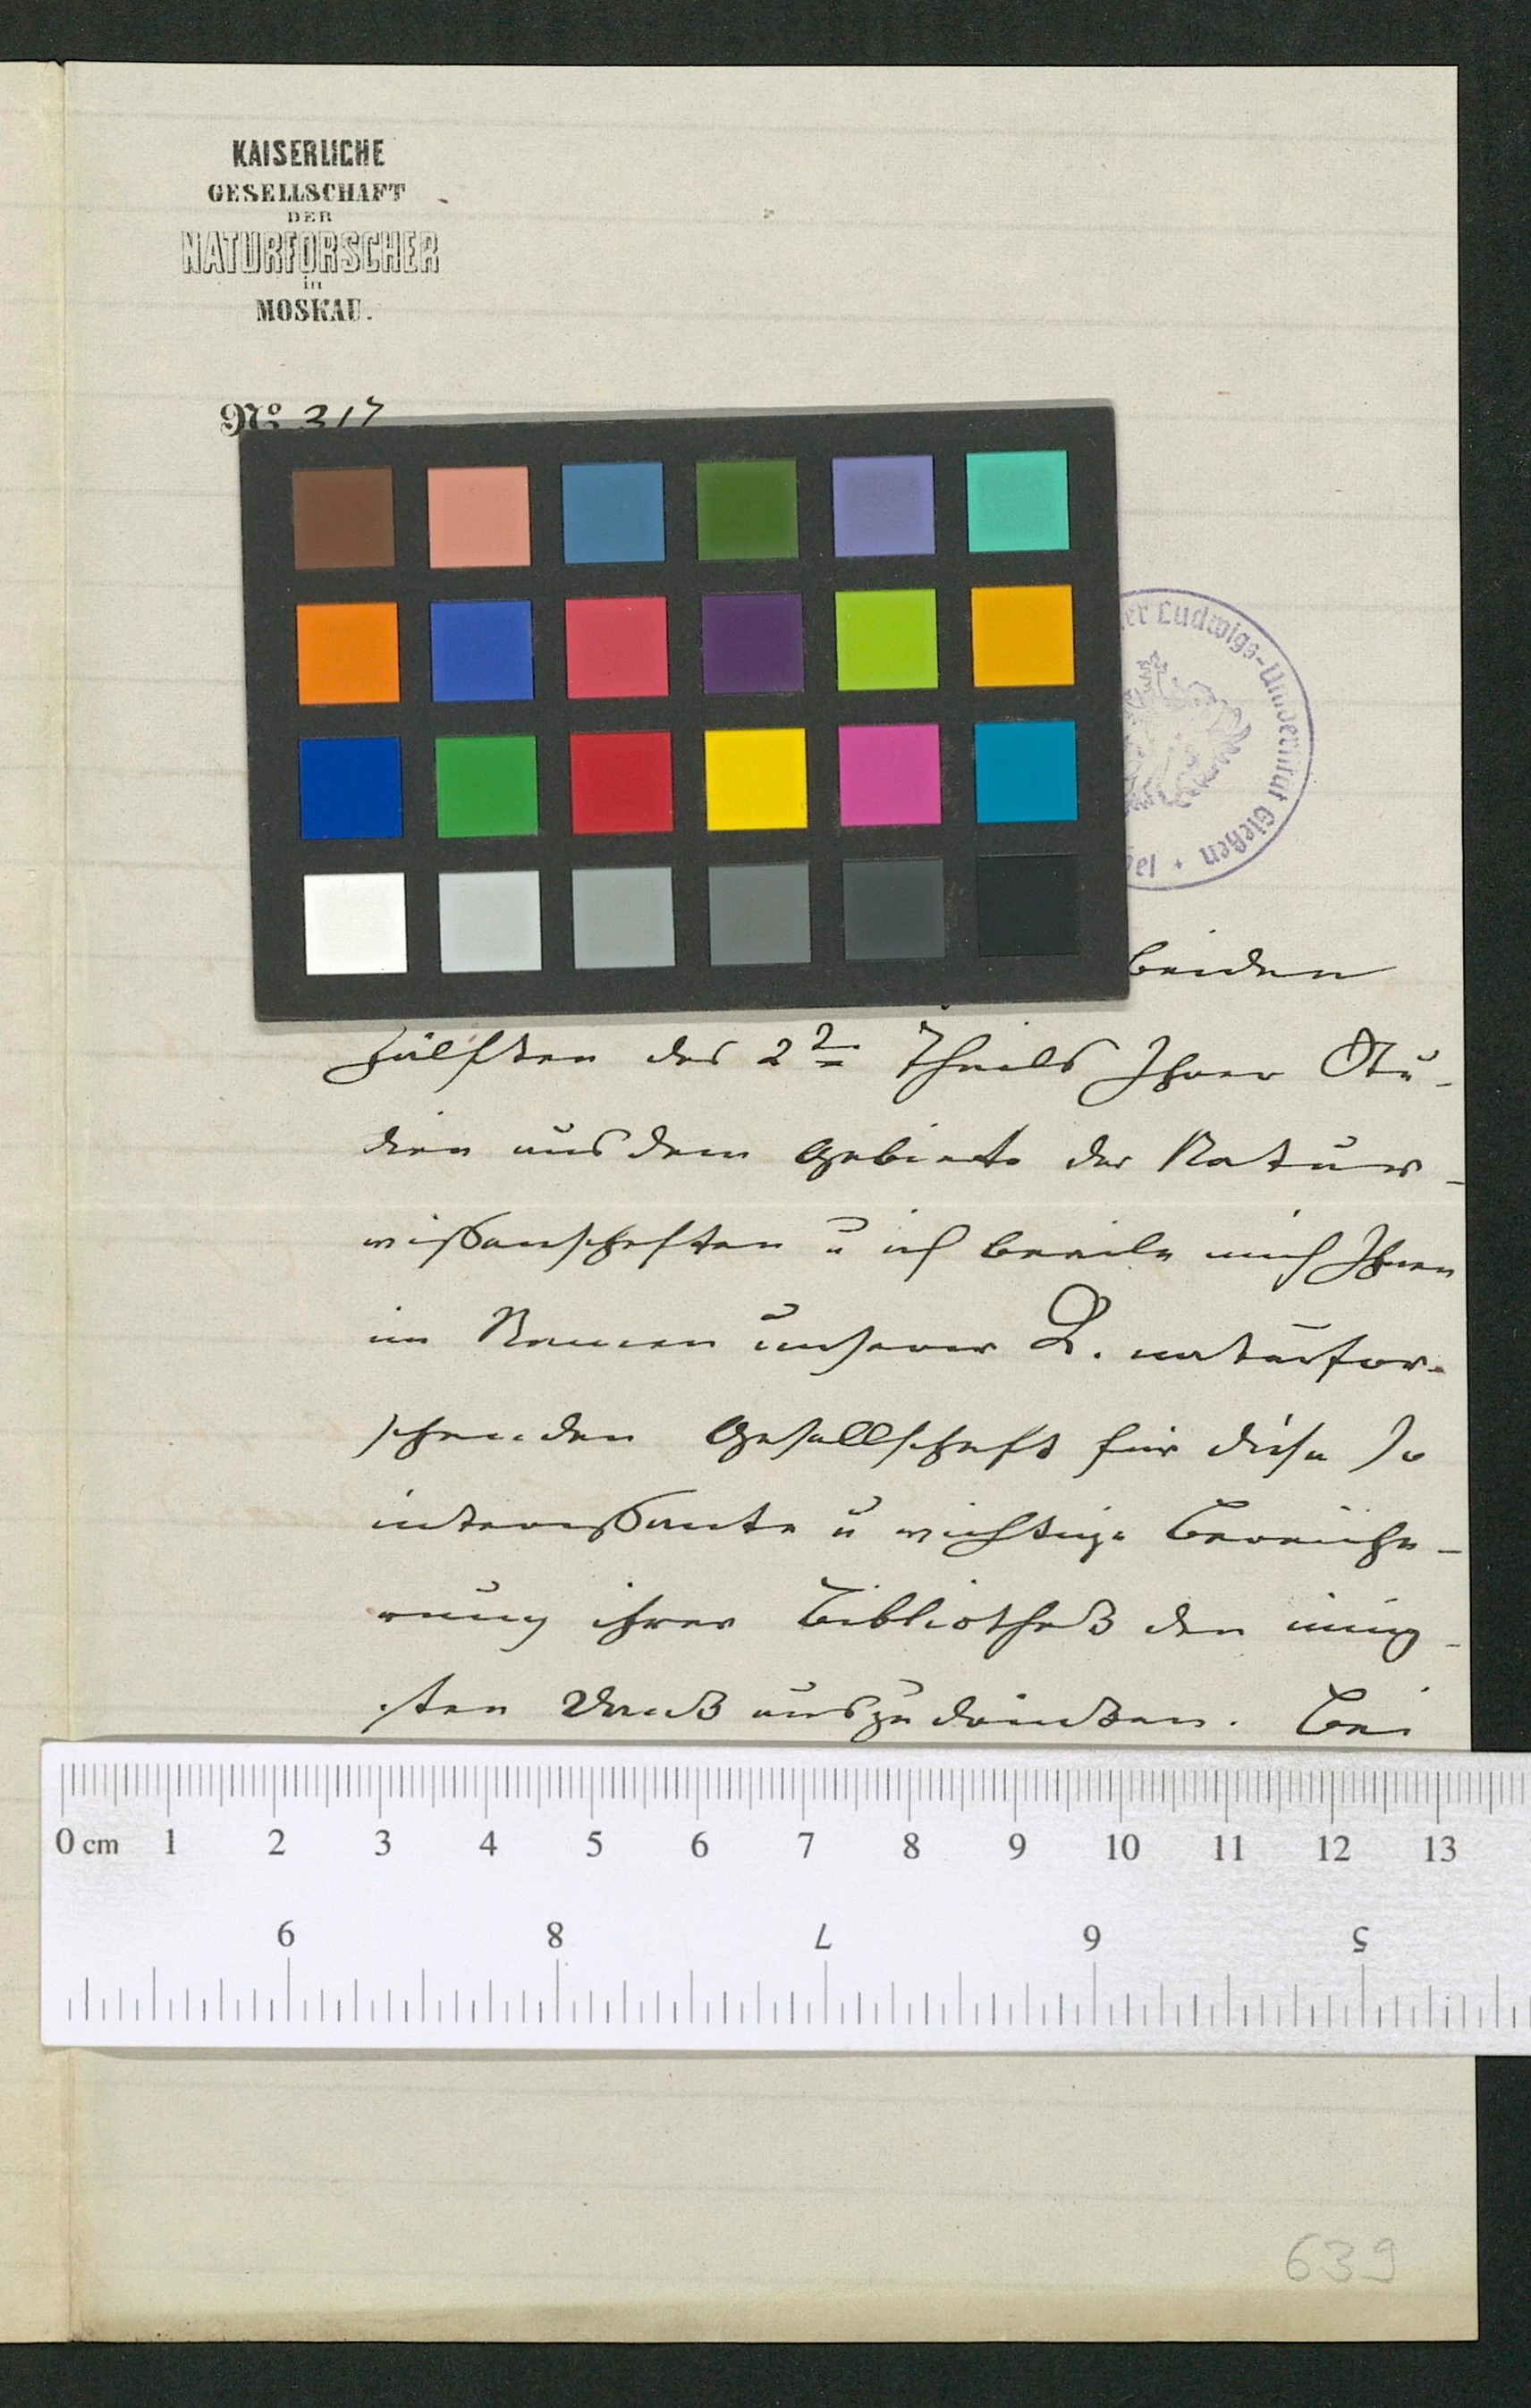 KAISERLICHE
GESELLSCHAFT
DER
NATURFORSCHER
in
MOSKAU.
No 317
er Ludwigs-Universität Gießen *
beiden
Hälften des 2ten Theils Ihrer Stu-
dien aus dem Gebiete der Natur-
wißenschaften u ich beeile mich Ihnen
im Namen unserer K. naturfor-
schenden Gesellschaft für diese so
interessante u wichtige Bereiche-
rung ihrer Bibliothek den innig-
sten Dank auszudrücken. Bei
0 cm 1 2 3 4 5 6 7 8 9 10 11 12 13
9 8 7 6 5
639